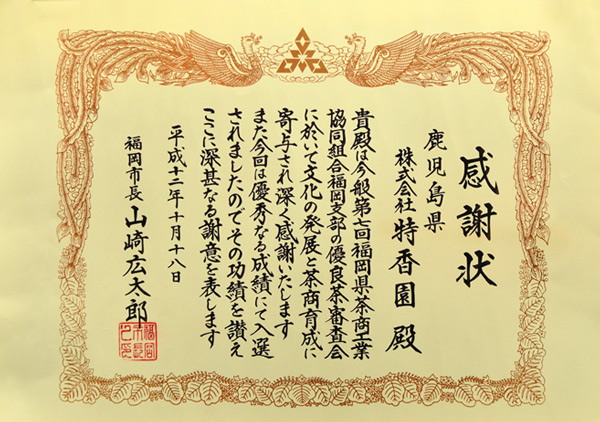 感謝状
鹿児島県
株式会社 特香園 殿
貴殿は今般第七回福岡県茶商工業
協同組合福岡支部の優良茶審査会
に於いて文化の発展と茶商育成に
寄与され深く感謝いたします
また今回は優秀なる成績にて入選
されましたのでその功績を讃え
ここに深甚なる謝意を表します
平成十二年十月十八日
福岡市長 山崎広太郎